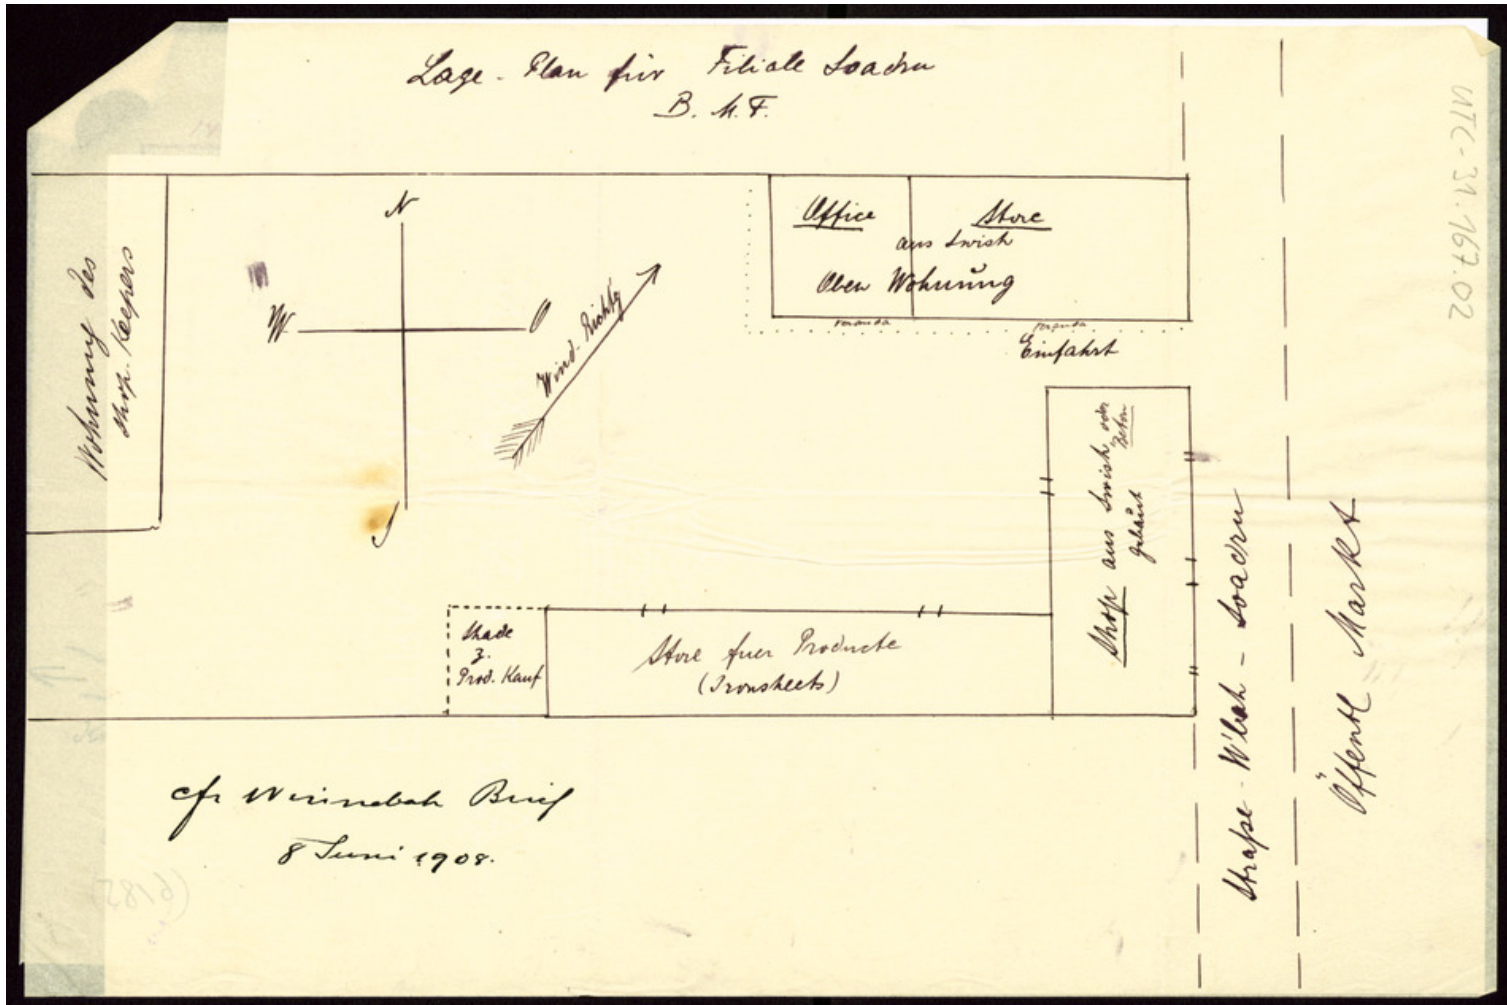 Lage-Plan für Filiale Soadru
B. M. F.
UTC-31.167.02
N
W
O
S
Wind-Richtg
Wohnung des
Shop-Keepers
Office
Store
aus Swish
Oben Wohnung
Veranda
Veranda
Einfahrt
Shop aus Swish oder
Beton
gebaut
Shade
z.
Prod. Kauf
Store fuer Producte
(Ironsheets)
Straße W'bah - Soadru
Öffentl Markt
cfr Winnebah Brief
8 Juni 1908.